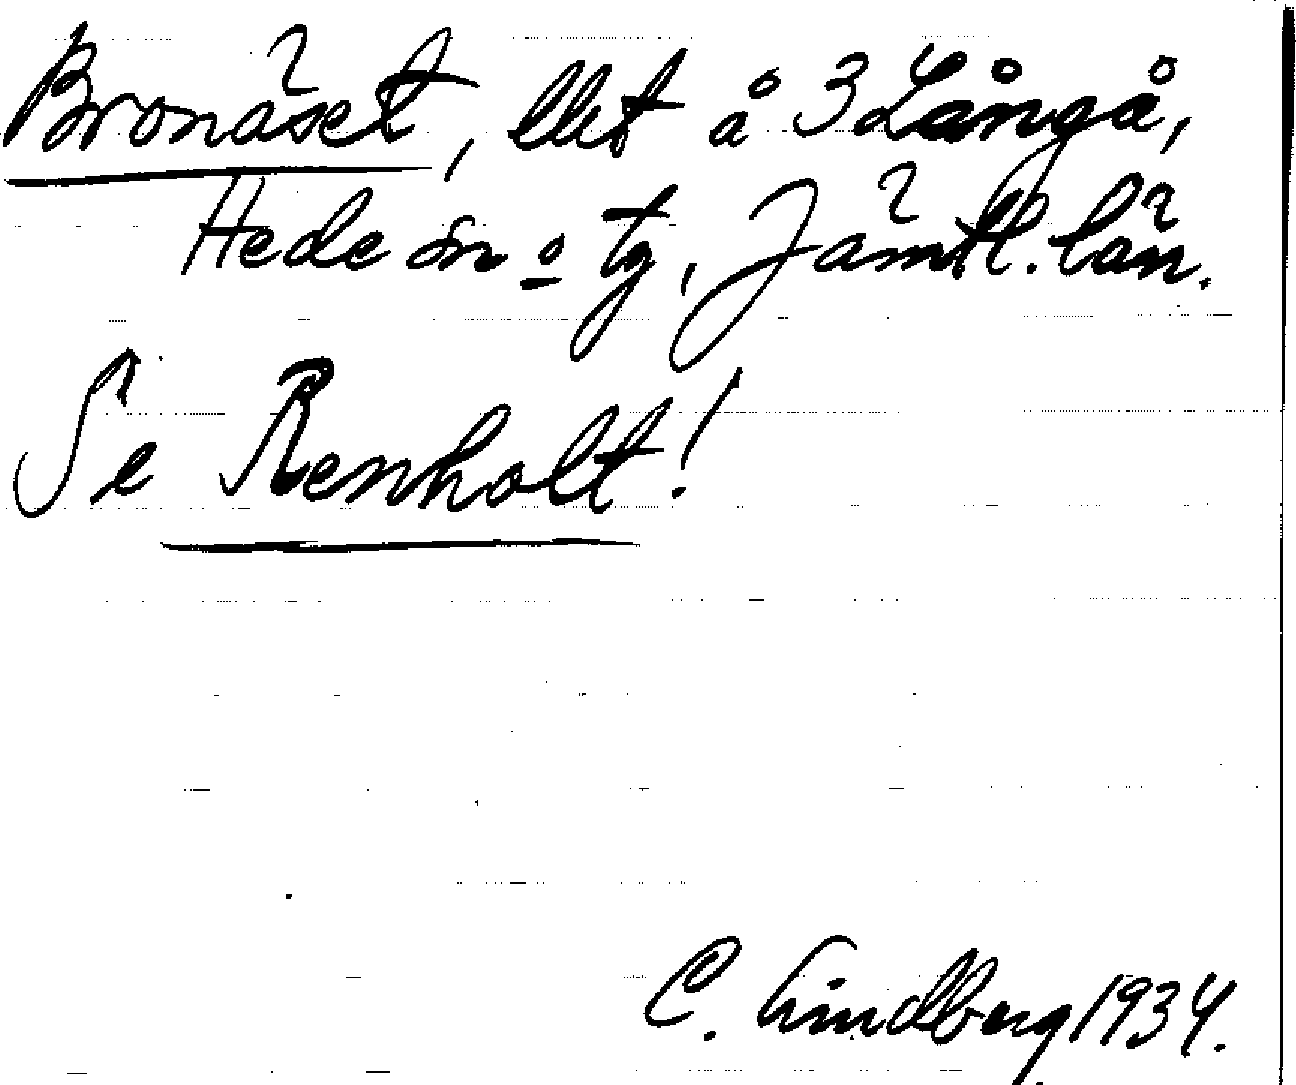 Bronäset, llet å 3 Långå,
Hede sn o tg, Jämtl. län.
Se Renholt!
C. Lindberg 1934.